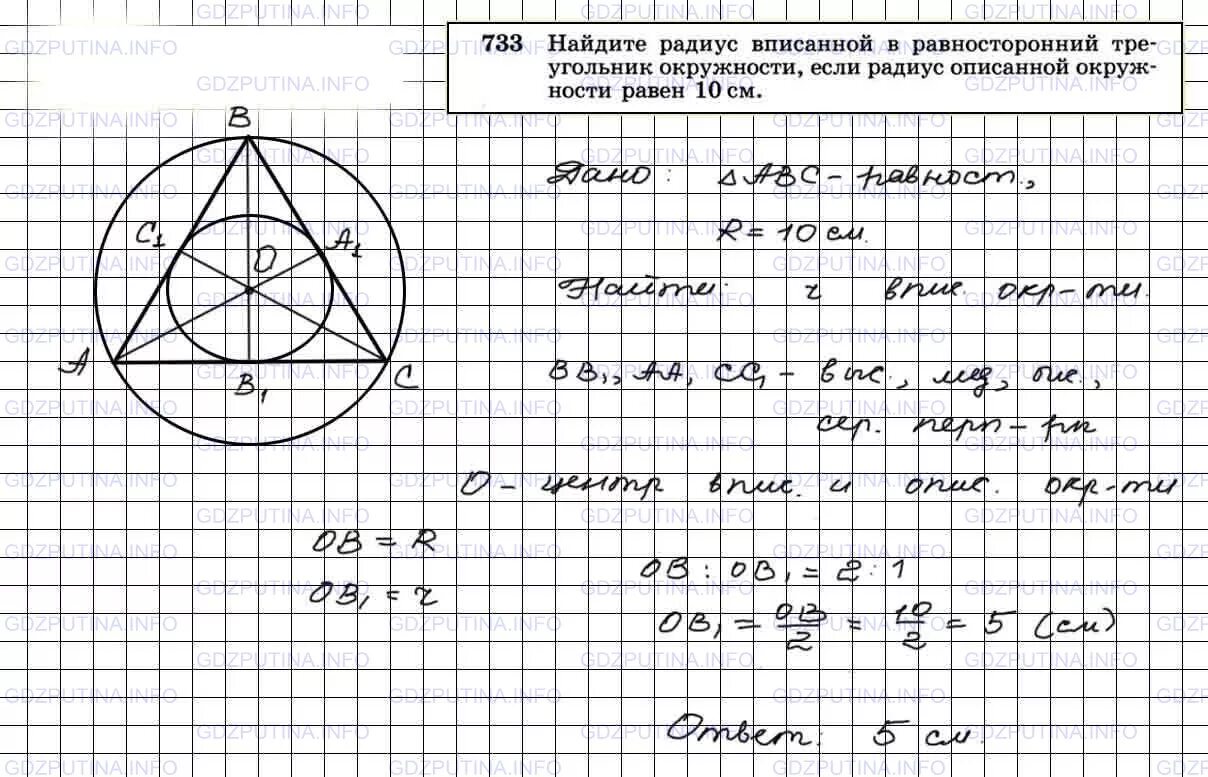 733 Найдите радиус вписанной в равносторонний тре-
угольник окружности, если радиус описанной окруж-
ности равен 10 см.
B
Дано: △ABC - равност.,
C₁ A₁
R = 10 см.
O
Найти: r впис. окр-ти.
A C
B₁
BB₁, AA₁ CC₁ - выс., мед, бис.,
сер. перп-ры
O - центр впис. и опис. окр-ти
OB = R
OB₁ = r
OB : OB₁ = 2 : 1
OB₁ = OB/2 = 10/2 = 5 (см)
Ответ: 5 см.
GDZPUTINA.INFO